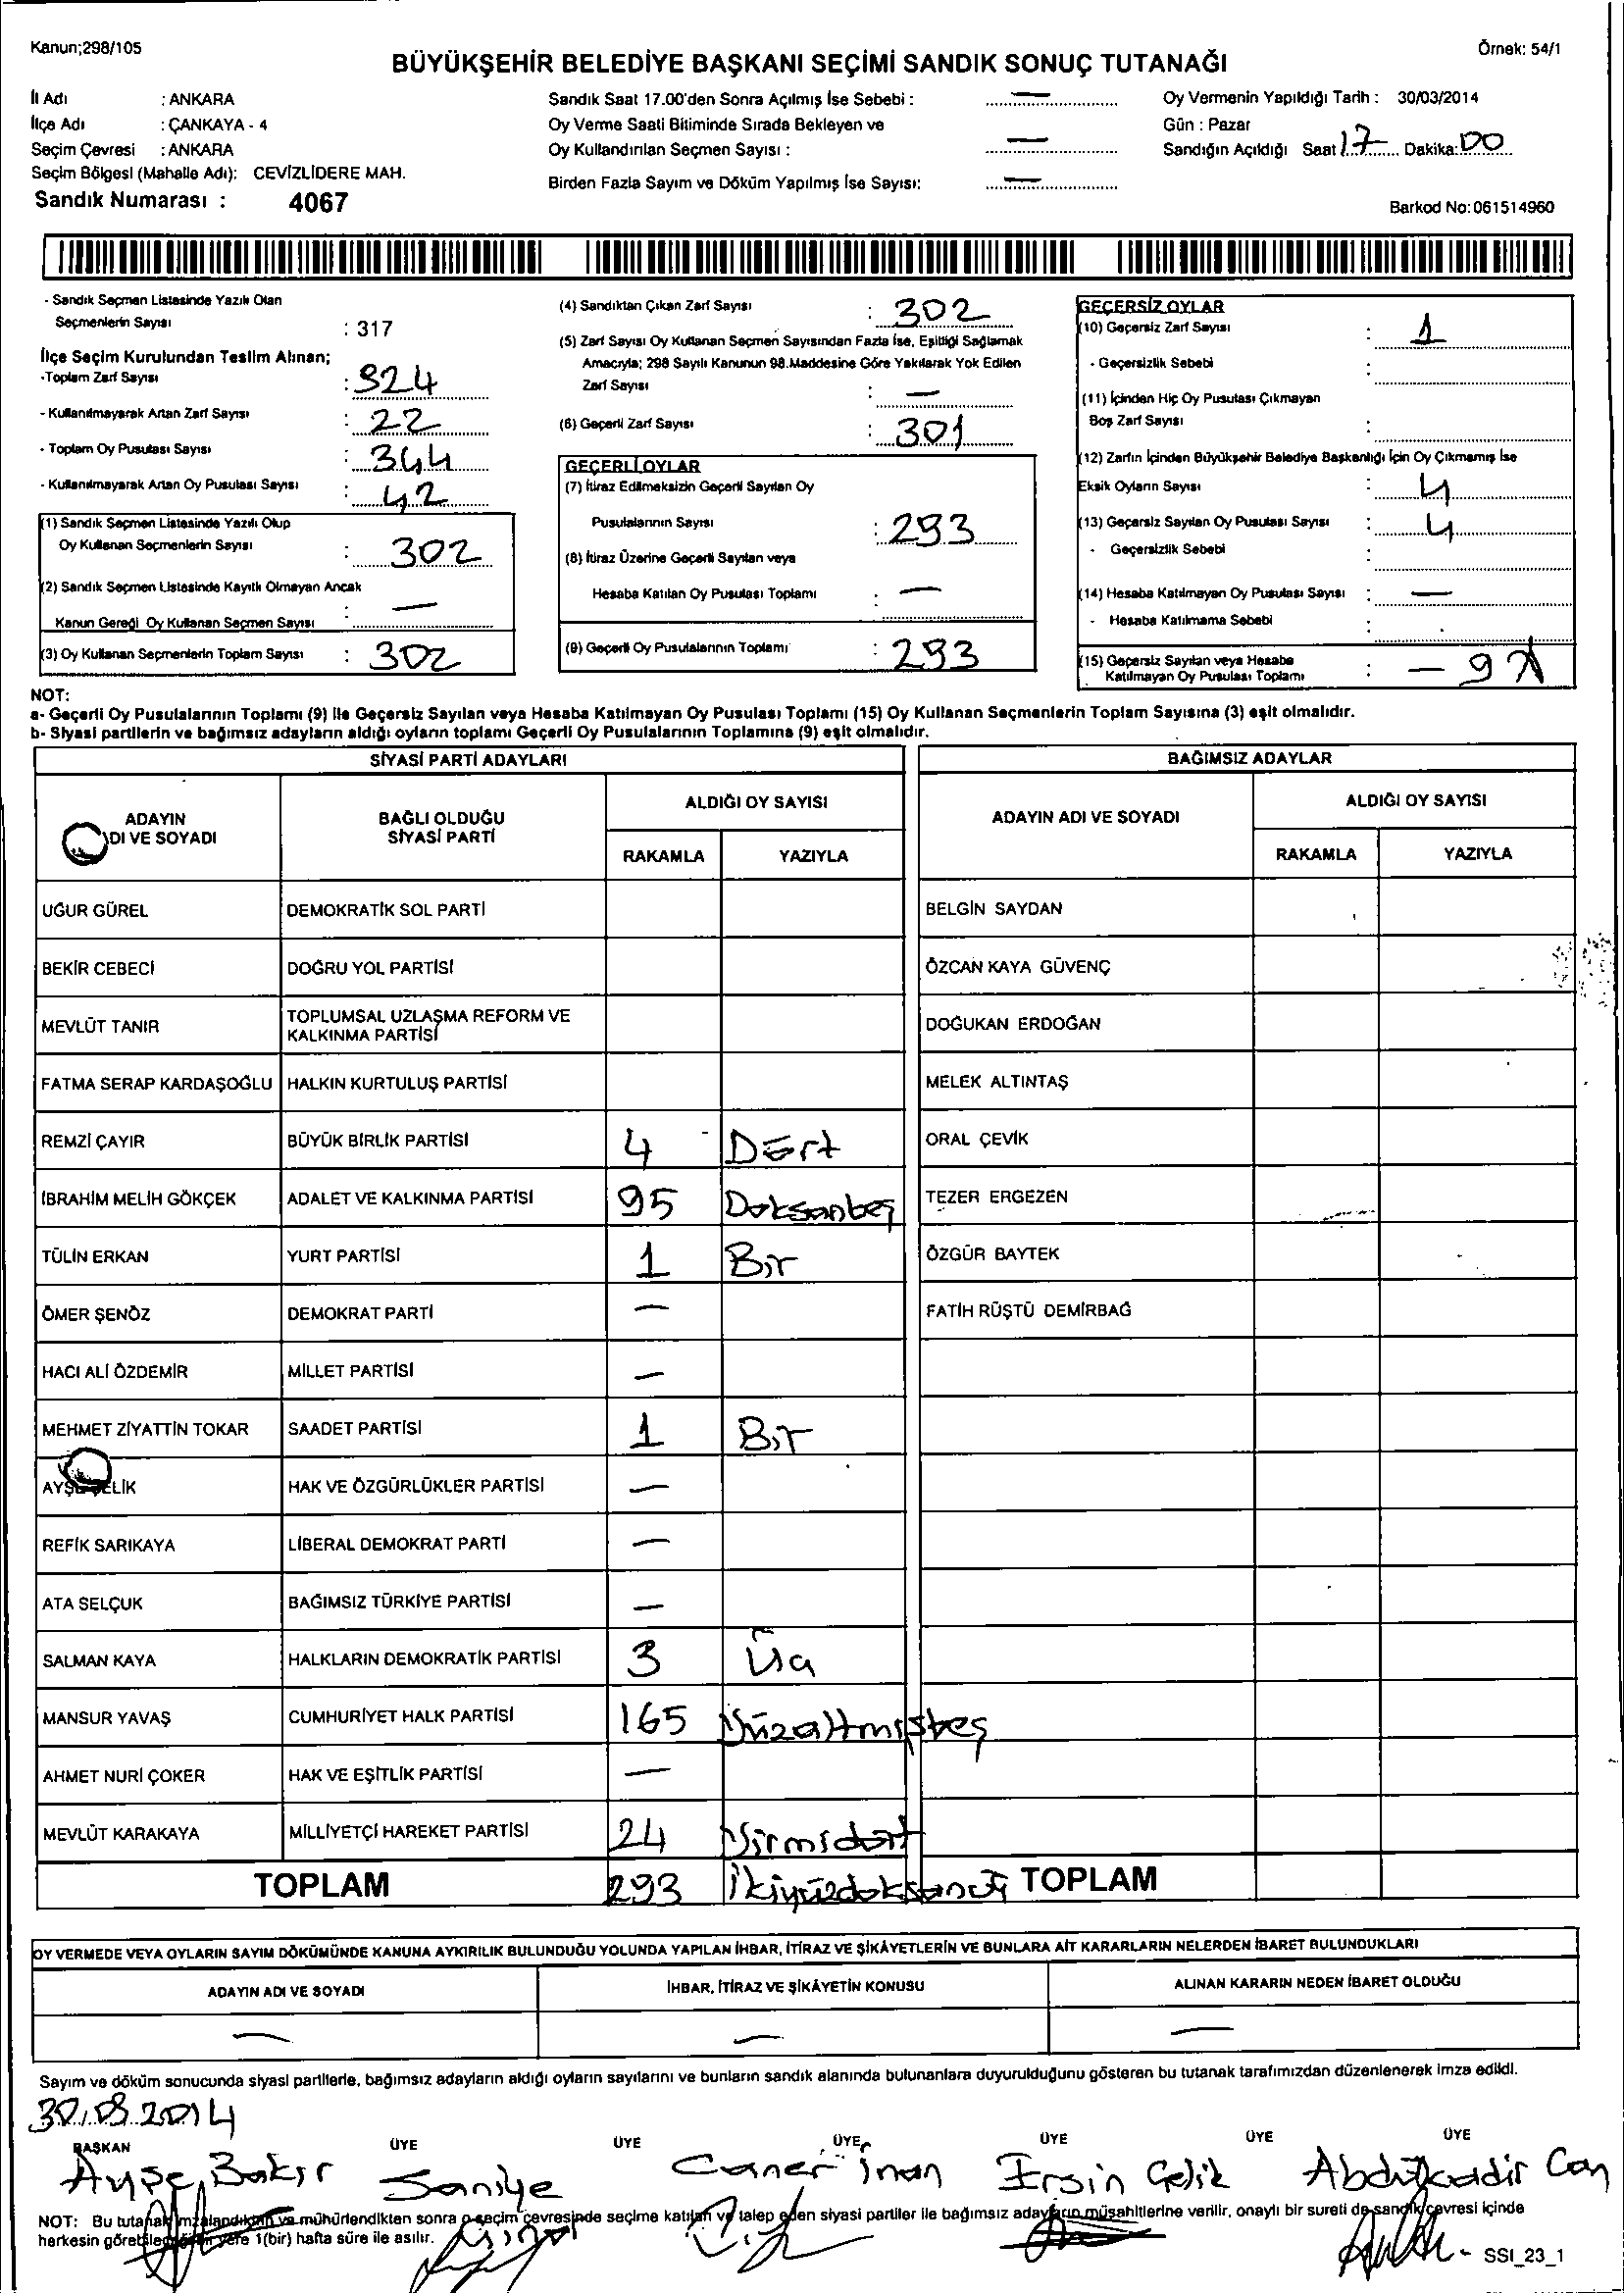 Kanun;298/105
Örnek: 54/1
BÜYÜKŞEHİR BELEDİYE BAŞKANI SEÇİMİ SANDIK SONUÇ TUTANAĞI
İl Adı : ANKARA
İlçe Adı : ÇANKAYA - 4
Seçim Çevresi : ANKARA
Seçim Bölgesi (Mahalle Adı): CEVİZLİDERE MAH.
Sandık Numarası : 4067
Sandık Saat 17.00'den Sonra Açılmış İse Sebebi : —
Oy Verme Saati Bitiminde Sırada Bekleyen ve
Oy Kullandırılan Seçmen Sayısı : —
Birden Fazla Sayım ve Döküm Yapılmış İse Sayısı: —
Oy Vermenin Yapıldığı Tarih : 30/03/2014
Gün : Pazar
Sandığın Açıldığı Saat 17 Dakika: 00
Barkod No:061514960
- Sandık Seçmen Listesinde Yazılı Olan
Seçmenlerin Sayısı : 317
İlçe Seçim Kurulundan Teslim Alınan;
-Toplam Zarf Sayısı : 324
- Kullanılmayarak Artan Zarf Sayısı : 22
- Toplam Oy Pusulası Sayısı : 344
- Kullanılmayarak Artan Oy Pusulası Sayısı : 42
(1) Sandık Seçmen Listesinde Yazılı Olup
Oy Kullanan Seçmenlerin Sayısı : 302
(2) Sandık Seçmen Listesinde Kayıtlı Olmayan Ancak
Kanun Gereği Oy Kullanan Seçmen Sayısı : —
(3) Oy Kullanan Seçmenlerin Toplam Sayısı : 302
(4) Sandıktan Çıkan Zarf Sayısı : 302
(5) Zarf Sayısı Oy Kullanan Seçmen Sayısından Fazla İse, Eşitliği Sağlamak
Amacıyla; 298 Sayılı Kanunun 98.Maddesine Göre Yakılarak Yok Edilen
Zarf Sayısı : —
(6) Geçerli Zarf Sayısı : 301
GEÇERLİ OYLAR
(7) İtiraz Edilmeksizin Geçerli Sayılan Oy
Pusulalarının Sayısı : 293
(8) İtiraz Üzerine Geçerli Sayılan veya
Hesaba Katılan Oy Pusulası Toplamı : —
(9) Geçerli Oy Pusulalarının Toplamı : 293
GEÇERSİZ OYLAR
(10) Geçersiz Zarf Sayısı : 1
- Geçersizlik Sebebi :
(11) İçinden Hiç Oy Pusulası Çıkmayan
Boş Zarf Sayısı :
(12) Zarfın İçinden Büyükşehir Belediye Başkanlığı İçin Oy Çıkmamış İse
Eksik Oyların Sayısı : 4
(13) Geçersiz Sayılan Oy Pusulası Sayısı : 4
- Geçersizlik Sebebi :
(14) Hesaba Katılmayan Oy Pusulası Sayısı : —
- Hesaba Katılmama Sebebi :
(15) Geçersiz Sayılan veya Hesaba
Katılmayan Oy Pusulası Toplamı : — 9
NOT:
a- Geçerli Oy Pusulalarının Toplamı (9) ile Geçersiz Sayılan veya Hesaba Katılmayan Oy Pusulası Toplamı (15) Oy Kullanan Seçmenlerin Toplam Sayısına (3) eşit olmalıdır.
b- Siyasi partilerin ve bağımsız adayların aldığı oyların toplamı Geçerli Oy Pusulalarının Toplamına (9) eşit olmalıdır.
SİYASİ PARTİ ADAYLARI
BAĞIMSIZ ADAYLAR
ADAYIN
DI VE SOYADI
BAĞLI OLDUĞU
SİYASİ PARTİ
ALDIĞI OY SAYISI
RAKAMLA YAZIYLA
ADAYIN ADI VE SOYADI
ALDIĞI OY SAYISI
RAKAMLA YAZIYLA
UĞUR GÜREL DEMOKRATİK SOL PARTİ BELGİN SAYDAN
BEKİR CEBECİ DOĞRU YOL PARTİSİ ÖZCAN KAYA GÜVENÇ
MEVLÜT TANIR TOPLUMSAL UZLAŞMA REFORM VE
KALKINMA PARTİSİ DOĞUKAN ERDOĞAN
FATMA SERAP KARDAŞOĞLU HALKIN KURTULUŞ PARTİSİ MELEK ALTINTAŞ
REMZİ ÇAYIR BÜYÜK BİRLİK PARTİSİ 4 Dört ORAL ÇEVİK
İBRAHİM MELİH GÖKÇEK ADALET VE KALKINMA PARTİSİ 95 Doksanbeş TEZER ERGEZEN
TÜLİN ERKAN YURT PARTİSİ 1 Bir ÖZGÜR BAYTEK
ÖMER ŞENÖZ DEMOKRAT PARTİ — FATİH RÜŞTÜ DEMİRBAĞ
HACI ALİ ÖZDEMİR MİLLET PARTİSİ —
MEHMET ZİYATTİN TOKAR SAADET PARTİSİ 1 Bir
AYŞE ÇELİK HAK VE ÖZGÜRLÜKLER PARTİSİ —
REFİK SARIKAYA LİBERAL DEMOKRAT PARTİ —
ATA SELÇUK BAĞIMSIZ TÜRKİYE PARTİSİ —
SALMAN KAYA HALKLARIN DEMOKRATİK PARTİSİ 3 Üç
MANSUR YAVAŞ CUMHURİYET HALK PARTİSİ 165 Yüzaltmışbeş
AHMET NURİ ÇOKER HAK VE EŞİTLİK PARTİSİ —
MEVLÜT KARAKAYA MİLLİYETÇİ HAREKET PARTİSİ 24 Yirmidört
TOPLAM 293 İkiyüzdoksanüç TOPLAM
OY VERMEDE VEYA OYLARIN SAYIM DÖKÜMÜNDE KANUNA AYKIRILIK BULUNDUĞU YOLUNDA YAPILAN İHBAR, İTİRAZ VE ŞİKÂYETLERİN VE BUNLARA AİT KARARLARIN NELERDEN İBARET BULUNDUKLARI
ADAYIN ADI VE SOYADI İHBAR, İTİRAZ VE ŞİKÂYETİN KONUSU ALINAN KARARIN NEDEN İBARET OLDUĞU
— — —
Sayım ve döküm sonucunda siyasi partilerle, bağımsız adayların aldığı oyların sayılarını ve bunların sandık alanında bulunanlara duyurulduğunu gösteren bu tutanak tarafımızdan düzenlenerek imza edildi.
30.03.2014
BAŞKAN ÜYE ÜYE ÜYE ÜYE ÜYE ÜYE
Ayşe Bakır Saniye Caner İnan Ersin Çelik Abdulkadir Can
NOT: Bu tutanak imzalandıktan ve mühürlendikten sonra o seçim çevresinde seçime katılan ve talep eden siyasi partiler ile bağımsız adayların müşahitlerine verilir, onaylı bir sureti de sandık çevresi içinde
herkesin görebileceği bir yere 1(bir) hafta süre ile asılır.
SSI_23_1